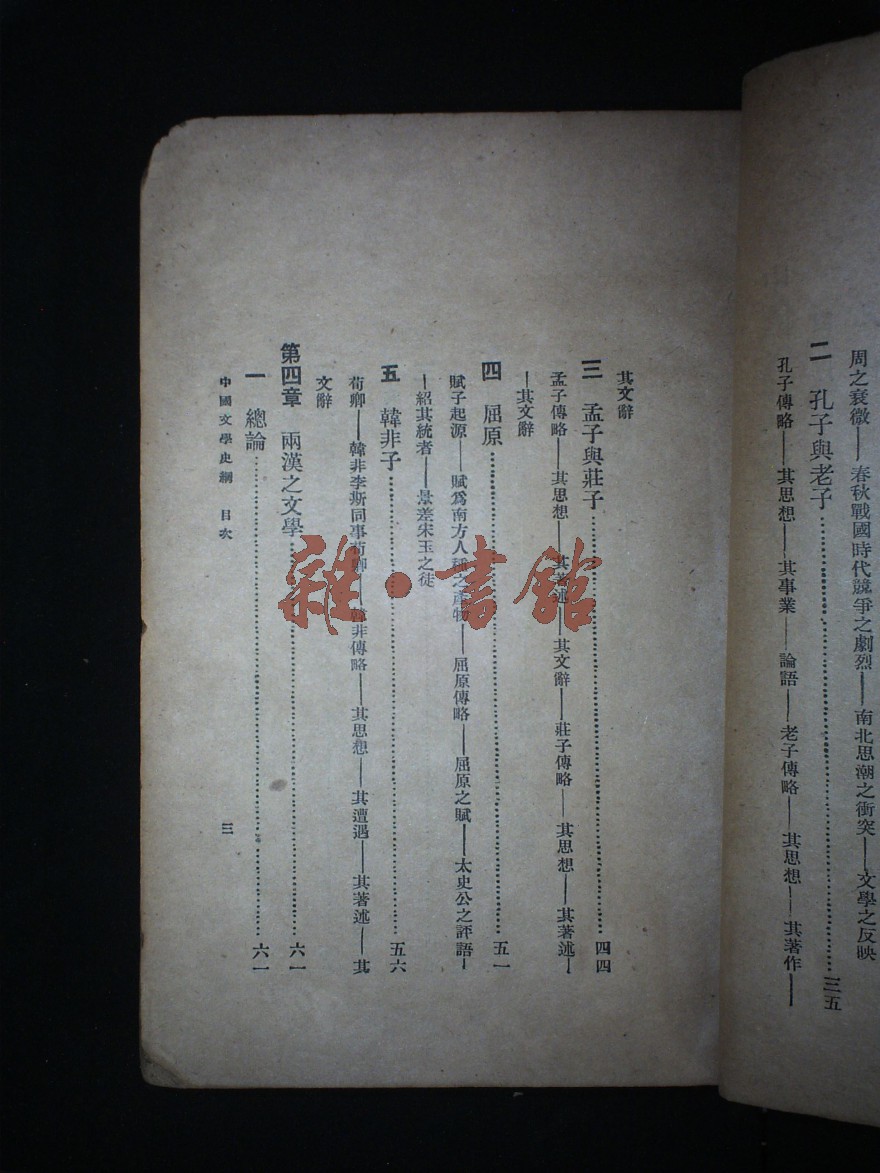 周之衰微——春秋戰國時代競爭之劇烈——南北思潮之衝突——文學之反映
二 孔子與老子……三五
孔子傳略——其思想——其事業——論語——老子傳略——其思想——其著作——
其文辭
三 孟子與莊子……四四
孟子傳略——其思想——其著述——其文辭——莊子傳略——其思想——其著述—
—其文辭
四 屈原……五一
賦子起源——賦爲南方人種之產物——屈原傳略——屈原之賦——太史公之評語—
—紹其統者——景差宋玉之徒
五 韓非子……五六
荀卿——韓非李斯同事荀卿——韓非傳略——其思想——其遭遇——其著述——其
文辭
第四章 兩漢之文學……六一
一 總論……六一
中國文學史綱 目次
三
雜·書館